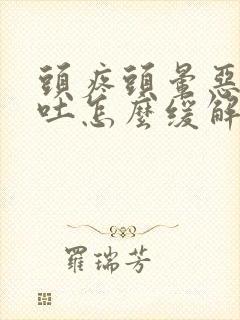 頭疼頭暈惡
吐怎麼緩解
羅瑞芳